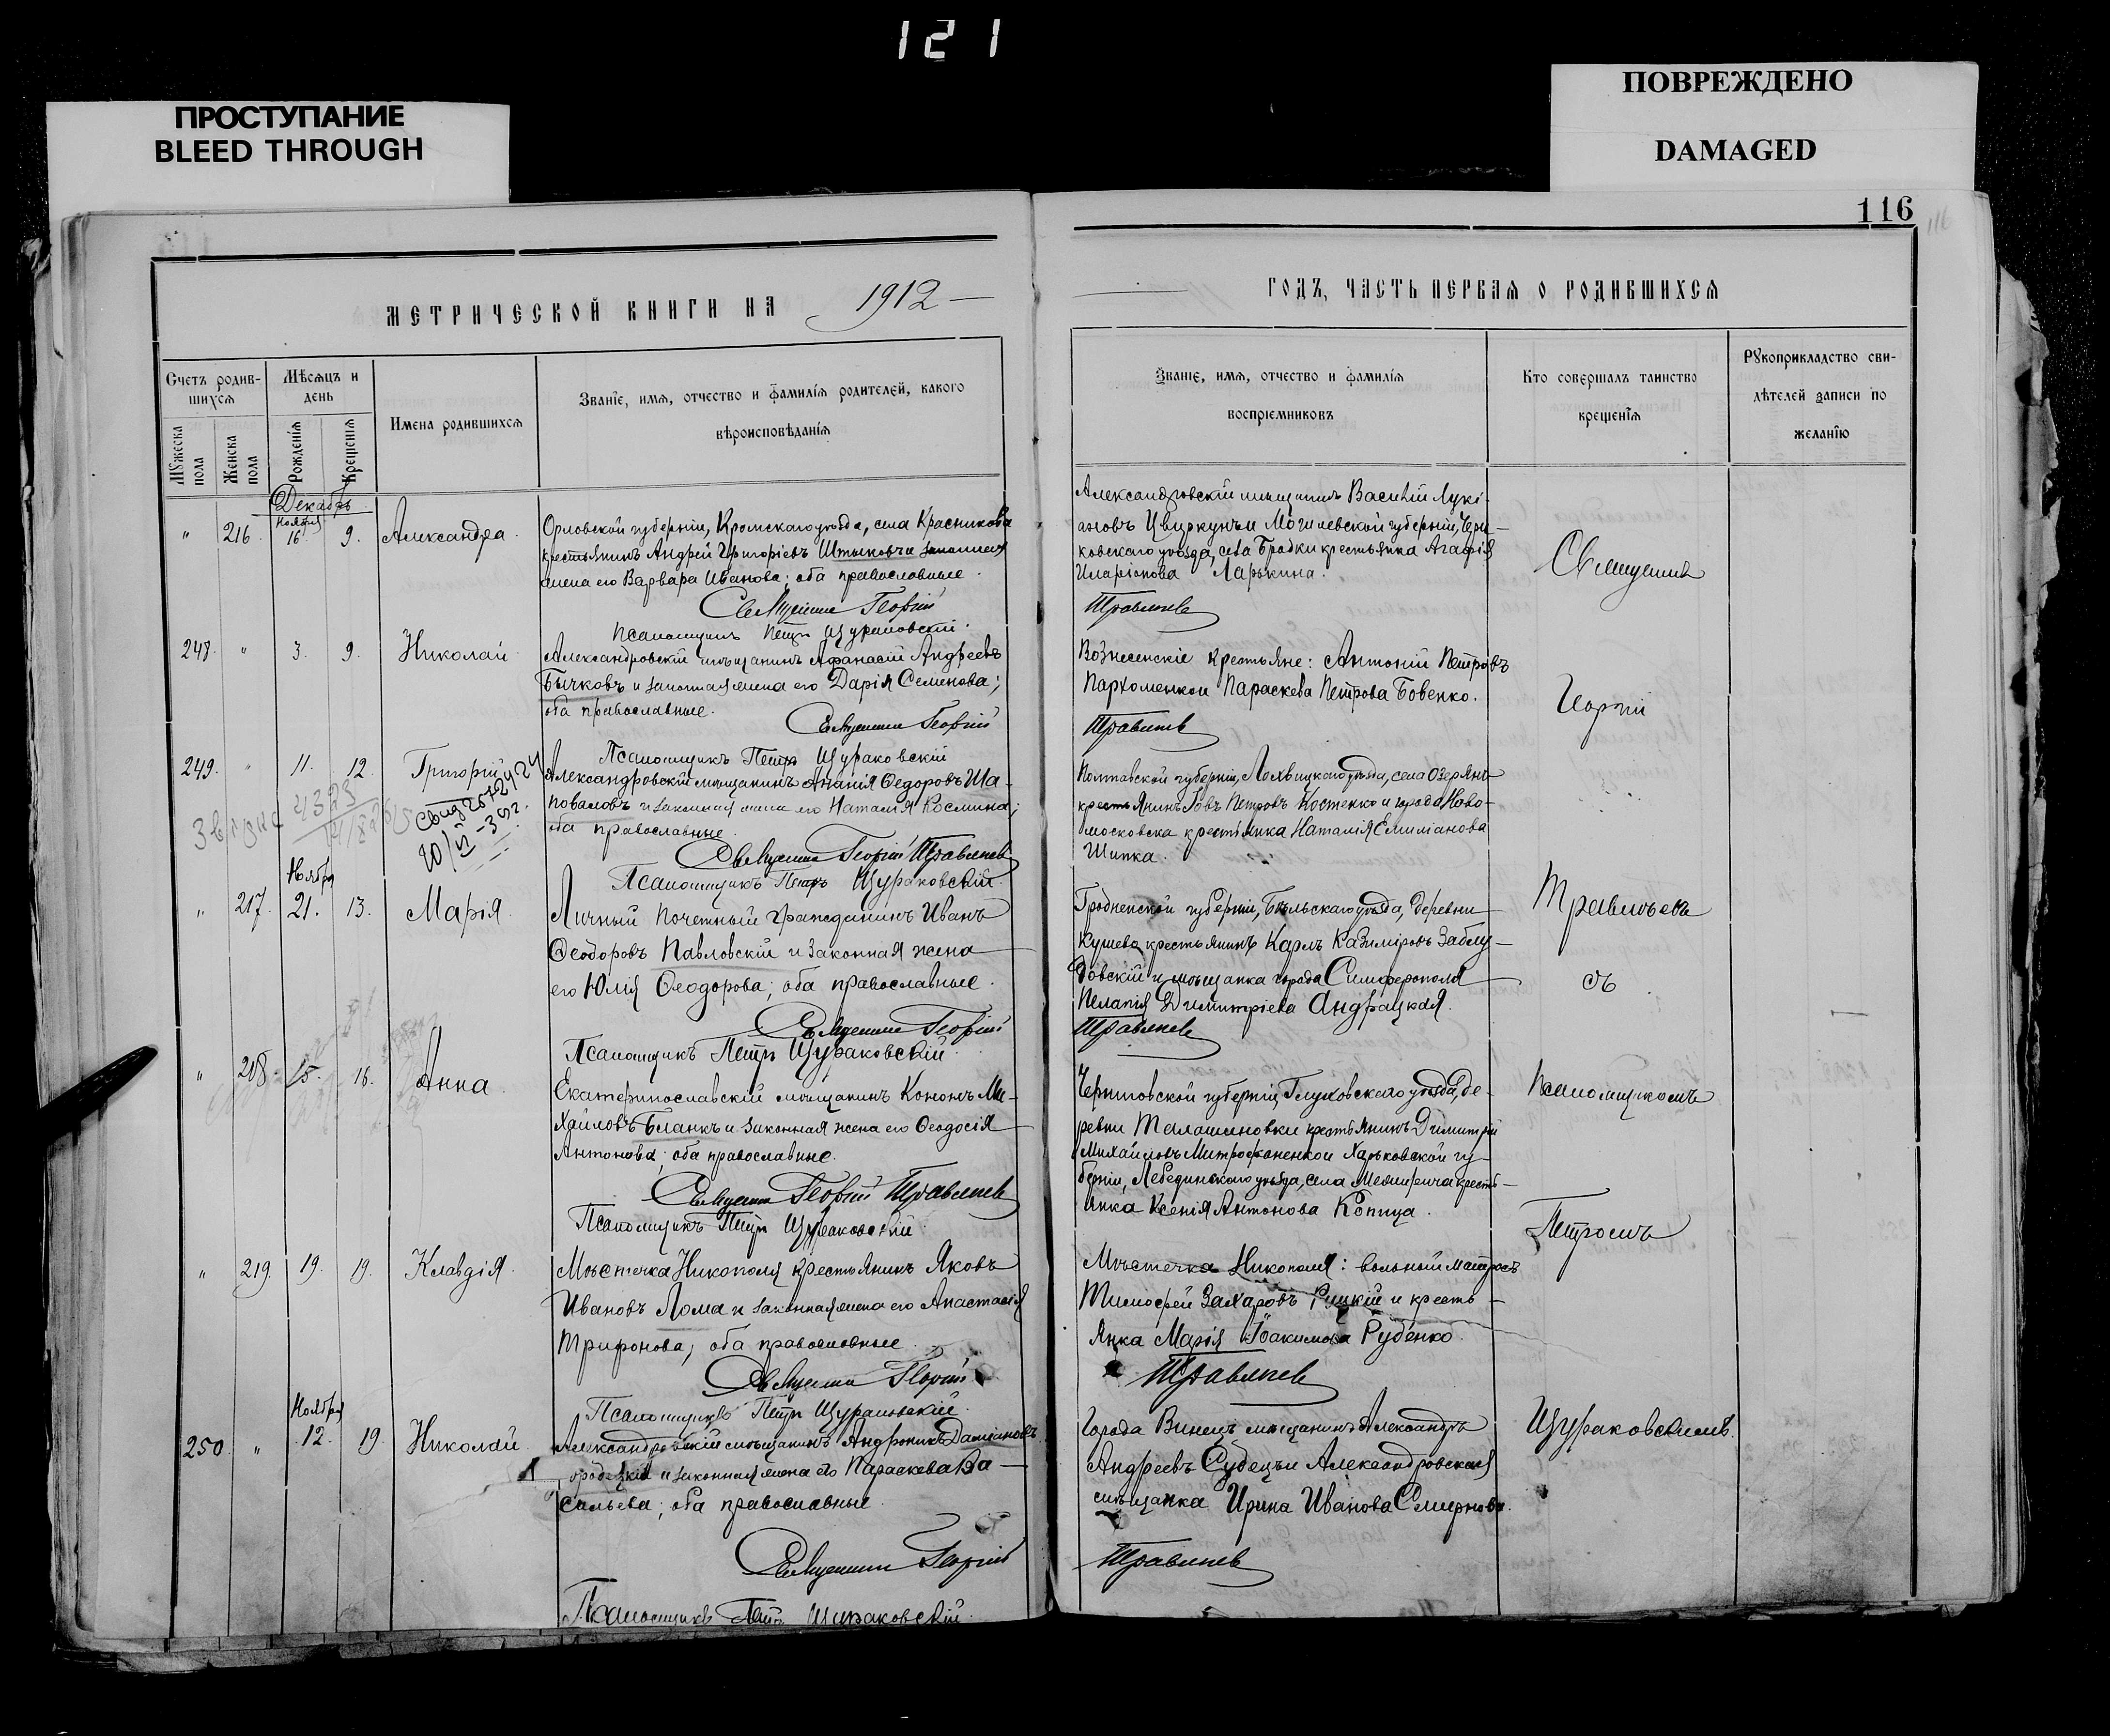 121
ПРОСТУПАНИЕ
BLEED THROUGH
ПОВРЕЖДЕНО
DAMAGED
116
МЕТРИЧЕСКОЙ КНИГИ НА 1912
ГОДЪ, ЧАСТЬ ПЕРВАЯ О РОДИВШИХСЯ
Счетъ родив-
шихся
Мужеска
пола
Женска
пола
Мѣсяцъ и
день
Рожденія
Крещенія
Имена родившихся
Званіе, имя, отчество и фамилія родителей, какого
вѣроисповѣданія
Званіе, имя, отчество и фамилія
воспріемниковъ
Кто совершалъ таинство
крещенія
Рукоприкладство сви-
дѣтелей записи по
желанію
Декабрь
" 216. Ноября 16 9. Александра.
Орловской губерніи, Кромскаго уѣзда, села Красникова
крестьянинъ Андрей Григоріевъ Штыковъ и законная
жена его Варвара Иванова; оба православные.
Священникъ Георгій
Псаломщикъ Петръ Щураковскій.
Александровскій мѣщанинъ Василій Лукі-
ановъ Цвиркунъ и Могилевской губерніи, Чери-
ковскаго уѣзда, села крестьянка Агафія
Иларіонова Ларькина.
Травлевъ
248. " 3. 9. Николай
Александровскій мѣщанинъ Афанасій Андреевъ
Бычковъ и законная жена его Дарія Семенова;
оба православные.
Священникъ Георгій
Псаломщикъ Петръ Щураковскій
Вознесенскіе крестьяне: Антоній Петровъ
Пархоменко и Параскева Петрова Бовенко.
249. " 11. 12. Григорій
Александровскій мѣщанинъ Ананія Ѳедоровъ Ша-
поваловъ и законная жена его Наталія Космина;
оба православные.
Священникъ Георгій
Псаломщикъ Петръ Щураковскій.
Полтавской губерніи, Лохвицкаго уѣзда, села Озеряны
крестьянинъ Іовъ Петровъ Костенко и города Ново-
московска крестьянка Наталія Емиліанова
Шипка.
" 217. Ноября 21. 13. Марія.
Личный Почетный Гражданинъ Иванъ
Ѳеодоровъ Павловскій и законная жена
его Юлія Ѳеодорова; оба православные.
Священникъ Георгій
Псаломщикъ Петръ Щураковскій.
Гродненской губерніи, Бѣльскаго уѣзда, деревни
крестьянинъ Карлъ Казиміровъ Заблу-
довскій и мѣщанка города Симферополя
Пелагія Димитріева Андрацкая.
" 218. 15. 16. Анна.
Екатеринославскій мѣщанинъ Кононъ Ми-
хайловъ Бланкъ и законная жена его Ѳеодосія
Антонова; оба православные.
Священникъ Георгій
Псаломщикъ Петръ Щураковскій
Черниговской губерніи, Глуховскаго уѣзда, де-
ревни крестьянинъ Димитрій
Михайловъ Митрофаненко и Харьковской гу-
берніи, Лебединскаго уѣзда, села Межирича кресть-
янка Ксенія Антонова Копица.
" 219. 19. 19. Клавдія.
Мѣстечка Никополя крестьянинъ Яковъ
Ивановъ Лома и законная жена его Анастасія
Трифонова; оба православные.
Священникъ Георгій
Псаломщикъ Петръ Щураковскій.
Мѣстечка Никополя: вольный матросъ
Тимофей Захаровъ Руцкій и кресть-
янка Марія Іоакимова Рубенко.
250. " Ноября 12. 19. Николай
Александровскій мѣщанинъ Андроникъ Даміановъ
и законная жена его Параскева Ва-
сильева; оба православные.
Священникъ Георгій
Псаломщикъ Петръ Щураковскій.
Города мѣщанинъ Александръ
Андреевъ Судецъ и Александровская
мѣщанка Ирина Иванова Смирнова.
Священникъ
Георгій
Травлевъ
съ
Псаломщикомъ
Петромъ
Щураковскимъ.